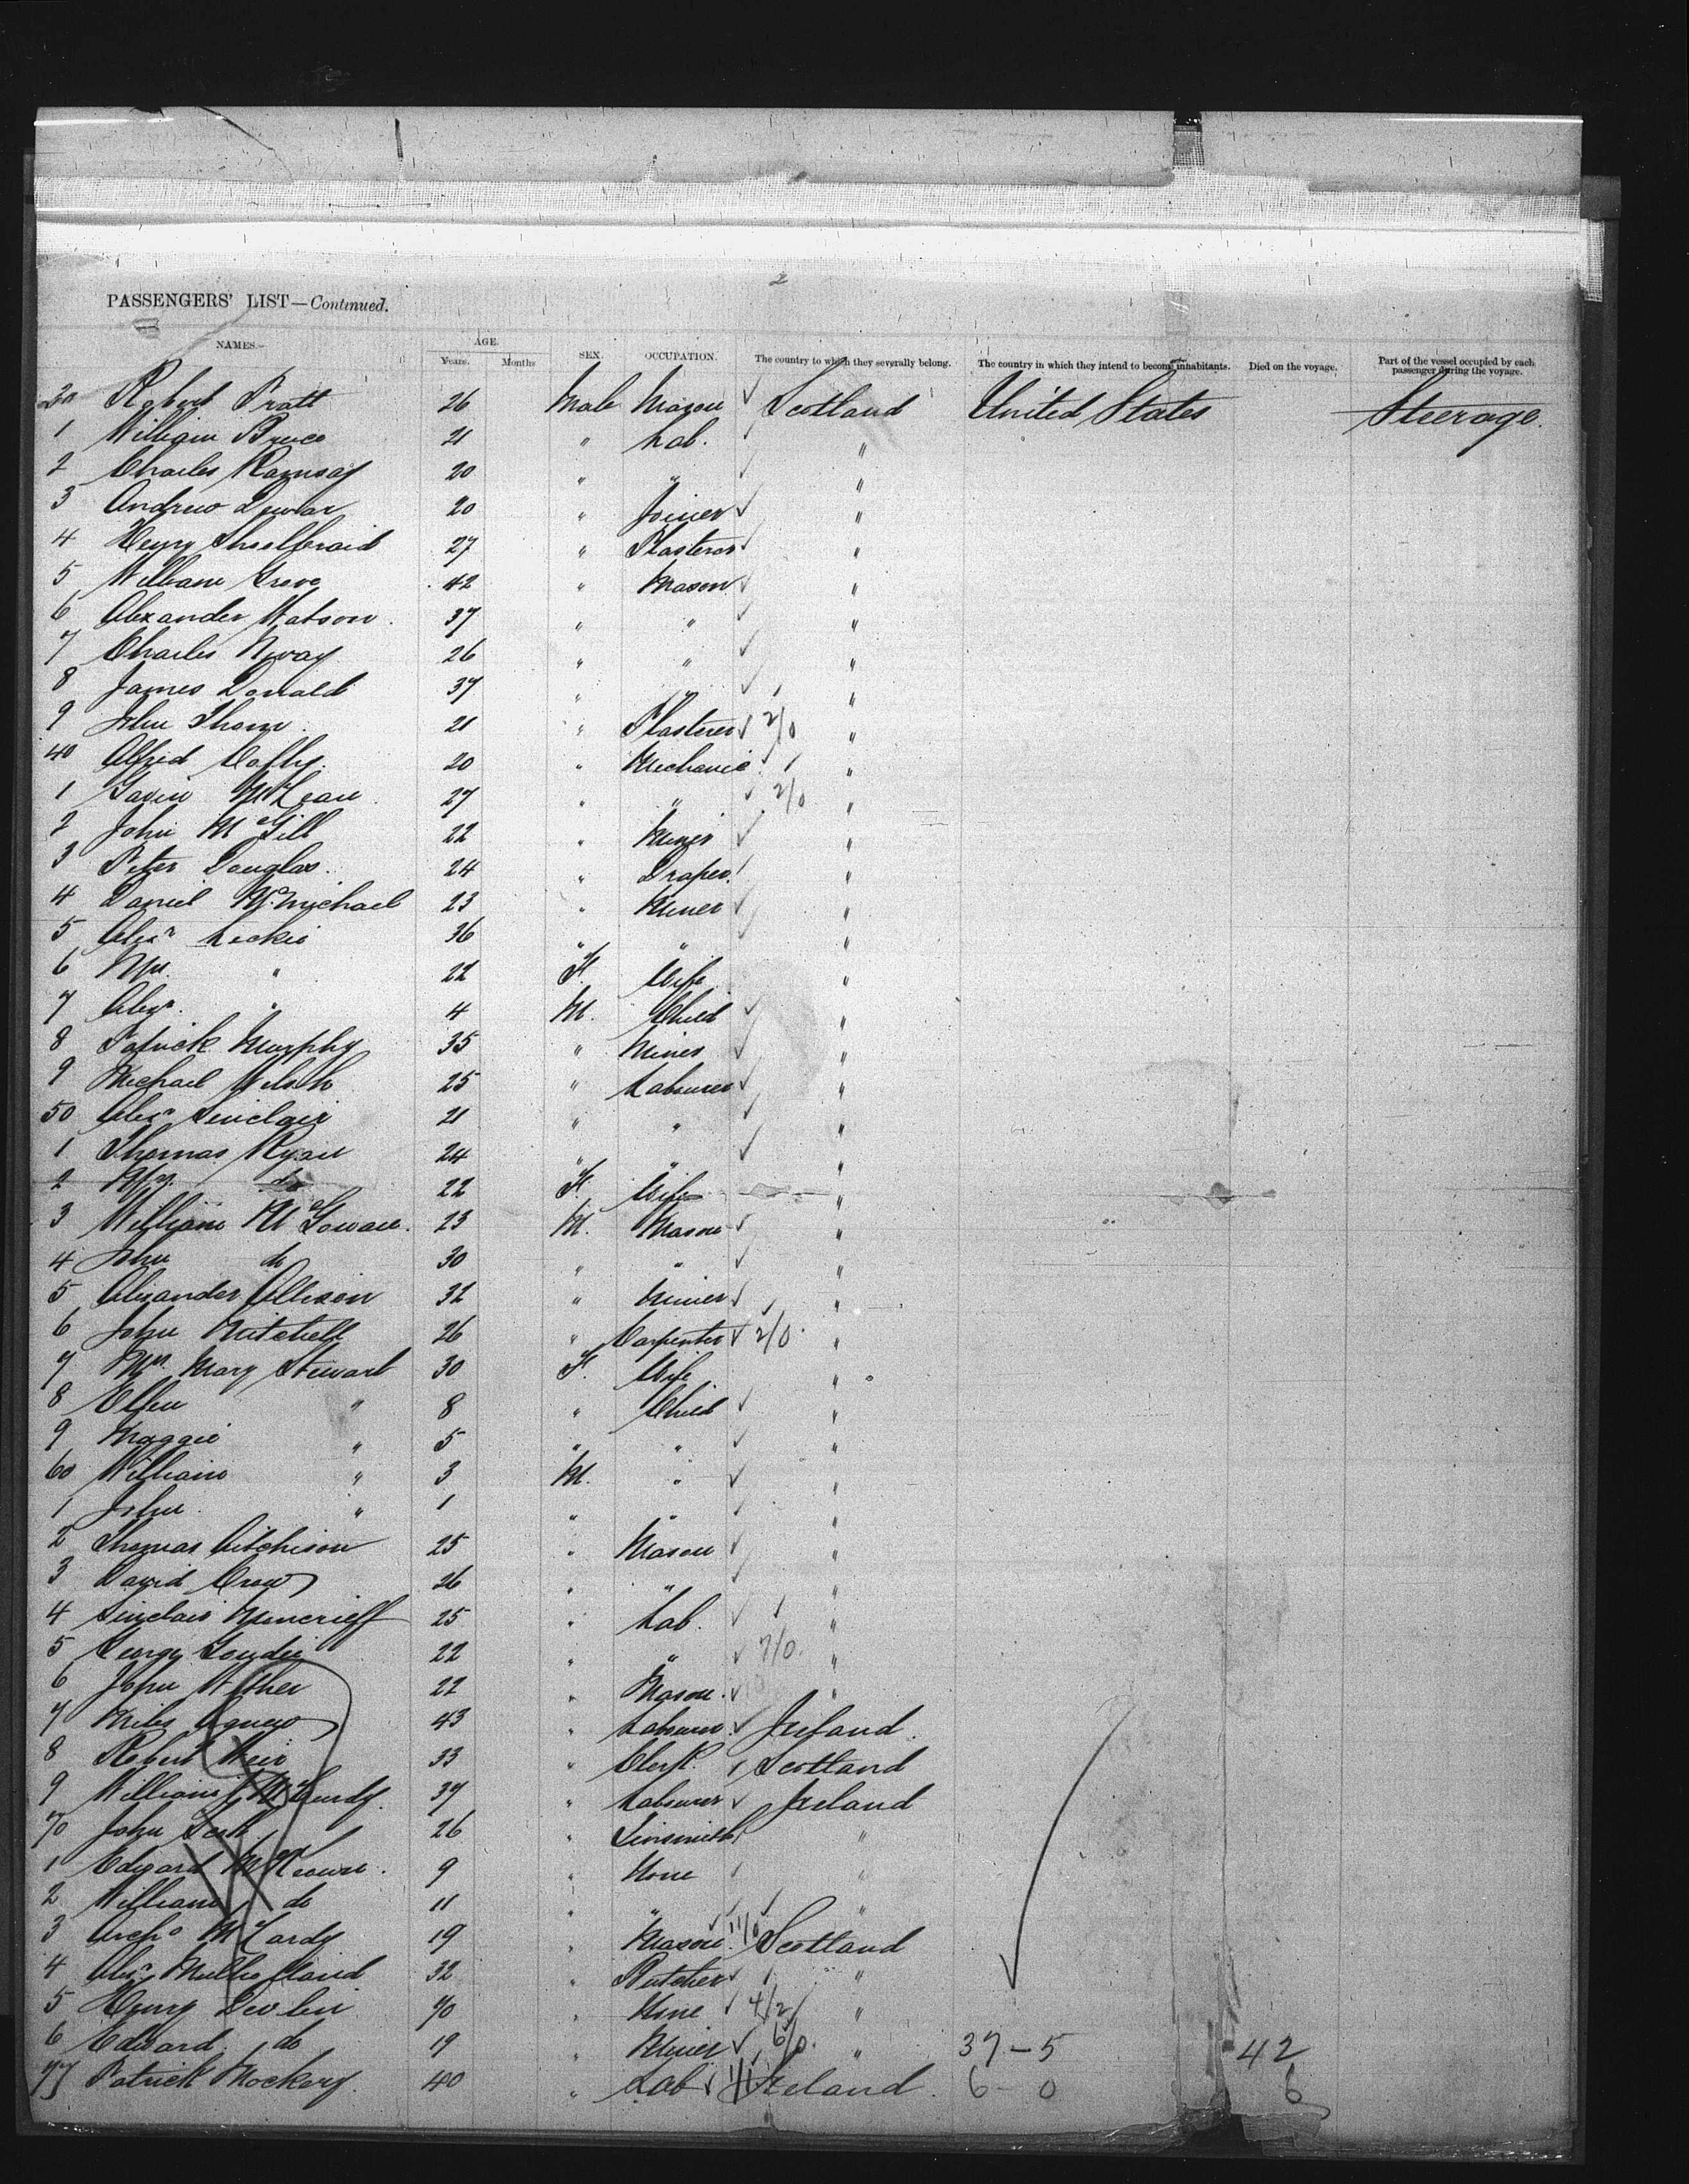 2
PASSENGERS' LIST—Continued.
NAMES. AGE. Years. Months SEX. OCCUPATION. The country to which they severally belong. The country in which they intend to become inhabitants. Died on the voyage. Part of the vessel occupied by each passenger during the voyage.
30 Robert Pratt 26 Male Mason ✓ Scotland United States Steerage.
1 William Bruce 21 " Lab. ✓ "
2 Charles Ramsay 20 " " ✓ "
3 Andrew Dewar 20 " Joiner ✓ "
4 Henry 27 " Plasterer ✓ "
5 William Greve 42 " Mason ✓ "
6 Alexander Watson. 37 " " ✓ "
7 Charles 26 " " ✓ "
8 James Donald 37 " " ✓ "
9 John Thom. 21 " Plasterer ✓ 2/0 "
40 Alfred 20 " Mechanic ✓ "
1 Gavin McLean 27 " " ✓ 2/0 "
2 John McGill 22 " Miner ✓ "
3 Peter Douglas. 24 " Draper. ✓ "
4 Daniel McMichael 23 " Miner ✓ "
5 Alexr Leckie 36 " " ✓ "
6 Mrs. " 22 F. Wife "
7 Alexr. " 4 M. Child ✓ "
8 Patrick Murphy 35 " Miner ✓ "
9 Michael Welsh 25 " Labourer ✓ "
50 Alexr Sinclair 21 " " ✓ "
1 Thomas Ryan 24 " " ✓ "
2 Mrs. do 22 F. Wife "
3 William McGowan. 23 M. Mason ✓ "
4 John do 30 " " ✓ "
5 Alexander Allison 32 " Miner ✓ "
6 John Mitchell 26 " Carpenter ✓ 2/0. "
7 Mrs. Mary Stewart 30 F. Wife "
8 Ellen " 8 " Child ✓ "
9 Maggie " 5 " " ✓ "
60 William " 3 M. " ✓ "
1 John " 1 " " ✓ "
2 Thomas Aitchison 25 " Mason ✓ "
3 David Crow 26 " " ✓ "
4 Sinclair Muncrieff 25 " Lab. ✓ "
5 George Goudie 22 " " ✓ "
6 John 22 " Mason. ✓ "
7 Miles Agnew 43 " Labourer. ✓ Ireland.
8 Robert Weir 33 " Clerk. ✓ Scotland
9 William McCurdy. 37 " Labourer ✓ Ireland
70 John 26 " Tinsmith ✓ "
1 Edward McKeown. 9 " None ✓ "
2 William do 11 " " ✓ "
3 Archd McCardy 19 " Mason ✓ 11/0 Scotland
4 Alexr 32 " Butcher ✓ "
5 Henry Devlin 70 " None ✓ 4/2 "
6 Edward do 19 " Miner ✓ 6/0. " 37-5 42
77 Patrick Mockery. 40 " Lab ✓ Ireland. 6-0 6